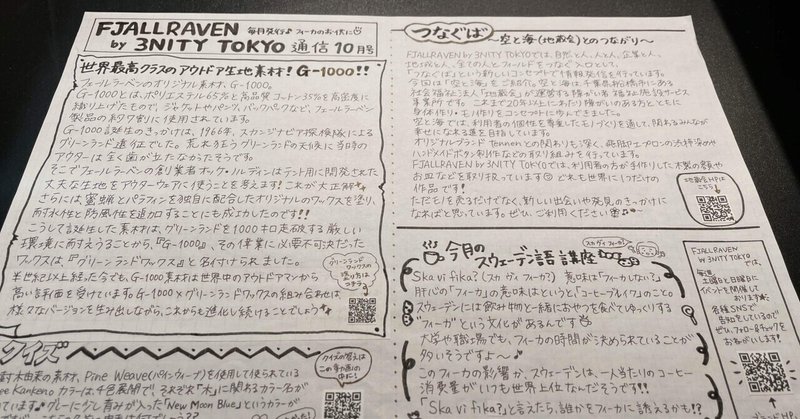 FJALLRAVEN 毎月発行♪ フィーカのお供に
by 3NITY TOKYO 通信10月号
世界最高クラスのアウトドア生地素材! G-1000!!
フェールラーベンのオリジナル素材、G-1000。
G-1000とは、ポリエステル65%と高品質コットン35%を高密度に
織り上げたもので、ジャケットやパンツ、バックパックなど、フェールラーベン
製品の約9割に使用されています。
G-1000誕生のきっかけは、1966年、スカンジナビア探検隊による
グリーンランド遠征でした。荒れ狂うグリーンランドの天候に当時の
アウターは全く歯が立たなかったそうです。
そこでフェールラーベンの創業者オッケ・ノルディンはテント用に開発された
丈夫な生地をアウターウェアに使うことを考えます!これが大正解
さらには蜜蝋とパラフィンを独自に配合したオリジナルのワックスを塗り、
耐水性と防風性を追加することにも成功したのです!!
こうして誕生した素材は、グリーンランドを1000キロ走破する厳しい
環境に耐えうることから、『G-1000』、その偉業に必要不可欠だった
ワックスは、『グリーンランドワックス』と名付けられました。
半世紀以上経った今でも、G-1000素材は世界中のアウトドアマンから
高い評価を受けています。G-1000×グリーンランドワックスの組み合わせは、
様々なバージョンを生み出しながら、これからも進化し続けることでしょう
グリーンランド
ワックスの
塗り方は
コチラ
クイズ
クイズの答えは
この面の
中に!
木由来の素材、Pine Weave(パインウィーブ)を使用して作られている
Kankenのカラーは、4色展開で、それぞれ「木」に関わるカラー名が
います♪グレーに少し青みが入った「New Moon Blue」というカラーが
つなぐば
〜空と海(地蔵会)とのつながり〜
FJALLRAVEN by 3NITY TOKYOでは、自然と人、人と人、企業と人、
地域と人、全ての人とフィールドをつなぐ場として、
「つなぐば」という新しいコンセプトで情報発信を行っています。
今回は「空と海」をご紹介。空と海は千葉県船橋市にある
社会福祉法人「地蔵会」が運営する障がい者福祉施設サービス
事業所です。これまで20年以上にわたり障がいのある方とともに
身体作り・モノ作りをコンセプトに歩んできました。
空と海では、利用者の個性を尊重したモノづくりを通して、関わるみんなが
幸せになれる道を目指しています。
オリジナルブランドtennenとの関わりも深く、
ハンドメイドボタン制作などの取り組みを行っています。
FJALLRAVEN by 3NITY TOKYOでは、利用者の方が手作りした木製の額や
お皿などを取り扱っています どれも世界に1つだけの
作品です!
ただモノを売るだけでなく、新しい出会いや発見のきっかけに
なればと思っています。ぜひ、ご利用ください
地蔵会HPは
こちら
今月の
スウェーデン語講座
スカ ヴィ フィーカ?
Ska vi fika?(スカ ヴィ フィーカ?) 意味は「フィーカしない?」
肝心の「フィーカ」の意味はというと、「コーヒーブレイク」のこと。
スウェーデンには飲み物と一緒におやつを食べてゆっくりする
“フィーカ”という文化があるんです
大学や職場でも、フィーカの時間が決められていることが
多いそうですよ〜♪
このフィーカの影響か、スウェーデンは、一人当たりのコーヒー
消費量がいつも世界上位なんだそうです!!
「Ska vi fika?」と言えたら、誰かをフィーカに誘えるかも!?
FJALLRAVEN
by 3NITY TOKYO
では、
毎週
土曜日と日曜日に
イベントを開催して
おります
各種SNSで
告知をしているので
ぜひ、フォロー&チェックを
おねがいします!